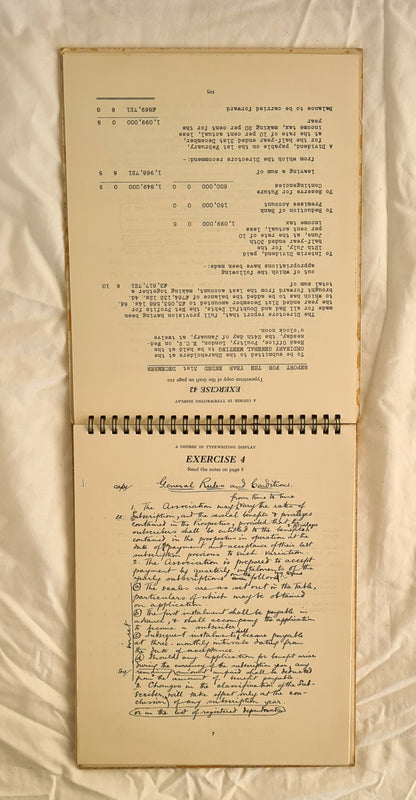 A COURSE IN TYPEWRITING DISPLAY
EXERCISE 42
Typewritten copy of the draft on page 102
REPORT FOR THE YEAR ENDED 31st DECEMBER
To be submitted to the Shareholders at the
ORDINARY GENERAL MEETING to be held at the
Head Office, Poultry, London, E.C.2, on Wed-
nesday, the 24th day of January, at twelve
o'clock noon.
The Directors report that, full provision having been
made for all Bad and Doubtful Debts, the Net Profits for
the year ended 31st December amounted to
to which has to be added the balance of
brought forward from the last account, making together a
total sum of £3,617,721 6 10
out of which the following
appropriations have been made:-
To Interim Dividend, paid
12th July, for the
half-year ended 30th
June, at the rate of 10
per cent actual, less
income tax 1,099,000 0 5
To Reduction of Bank
Premises Account 150,000 0 0
To Reserve for Future
Contingencies 600,000 0 0 1,849,000 0 5
leaving a sum of 1,968,721 6 5
from which the Directors recommend:-
A Dividend, payable on the 1st February,
for the half-year ended 31st December,
at the rate of 10 per cent actual, less
income tax, making 20 per cent for the
year 1,099,000 0 5
Balance to be carried forward £869,721 6 0
105
A COURSE IN TYPEWRITING DISPLAY
EXERCISE 4
Read the notes on page 8
General Rules and Conditions.
from time to time
1. The Association may vary the rates of
Subscription, and the social benefits & privileges
contained in the Prospectus, provided that
subscribers shall be entitled to the benefits
contained in the prospectus in operation at the
date of payment and acceptance of their last
subscription previous to such variation.
2. The Association is prepared to accept
payment by quarterly instalments of the
yearly subscriptions on the following
(a) The scales are as set out in the Table,
particulars of which may be obtained
on application.
(b) The first instalment shall be payable in
advance, & shall accompany the application
to become a subscriber.
(c) Subsequent instalments become payable
at three-monthly intervals dating from
the date of acceptance.
(d) Should any application for benefit arise
during the currency of the subscription year, any
remaining amount unpaid shall be deducted
from the amount of benefit payable.
3. Changes in the classification of the Sub-
scriber will take effect only at the con-
clusion of any subscription year.
or in the list of registered dependants
7